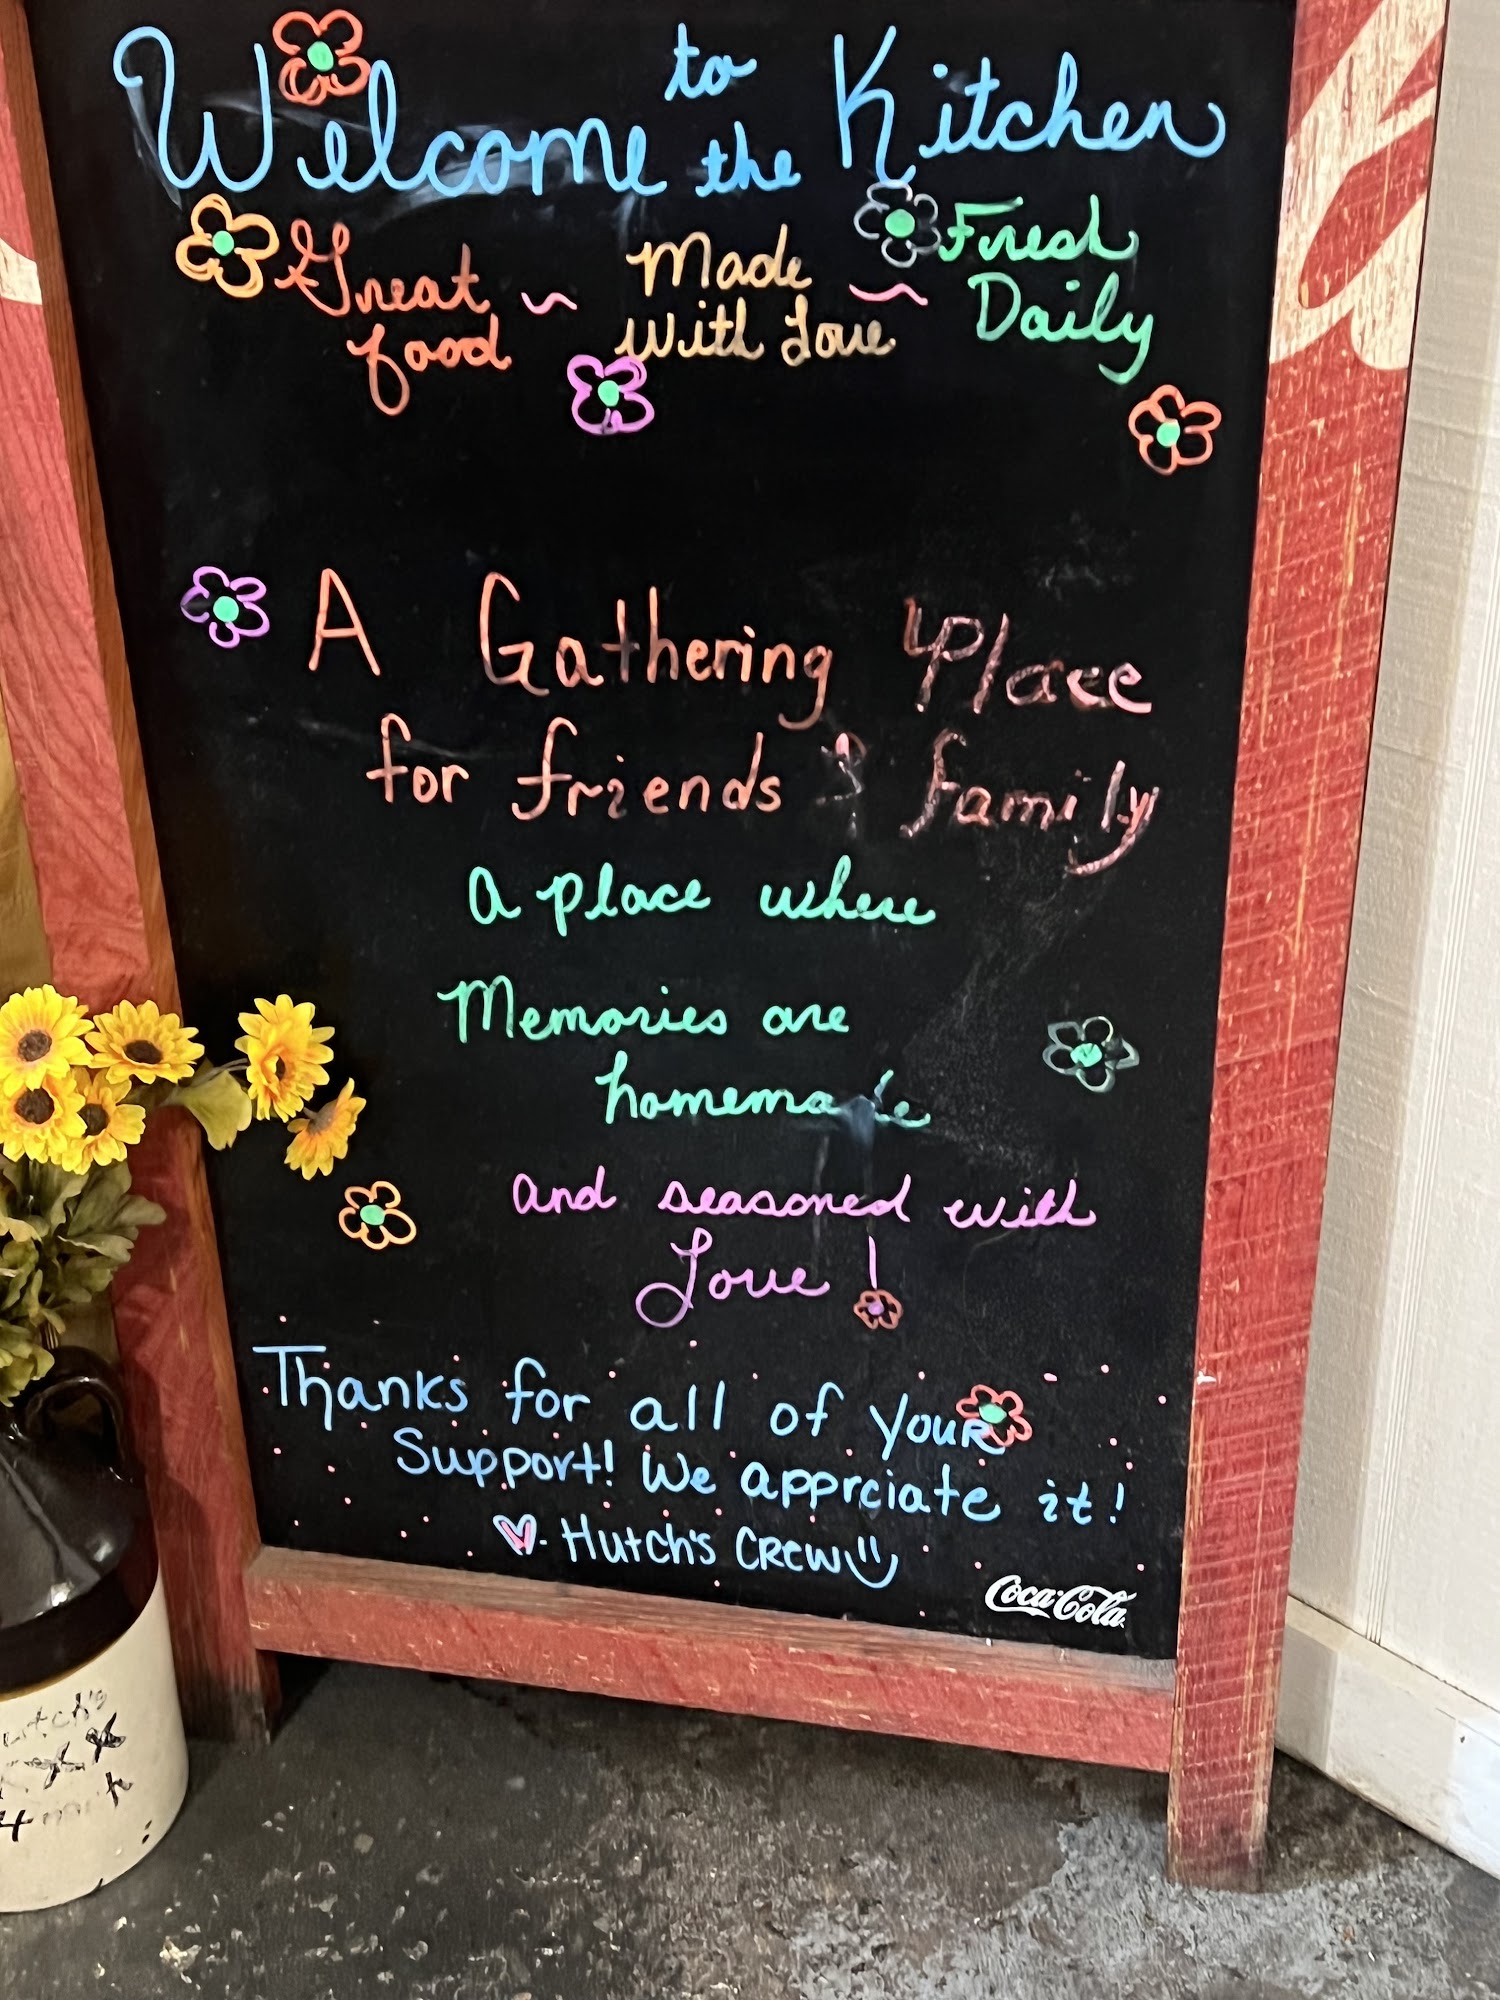 Welcome to the Kitchen
Great food ~ Made with Love ~ Fresh Daily
A Gathering Place
for friends & family
a place where
Memories are
homemade
and seasoned with
Love!
Thanks for all of youR
Support! We apprciate it!
Hutch's CREW
Coca-Cola